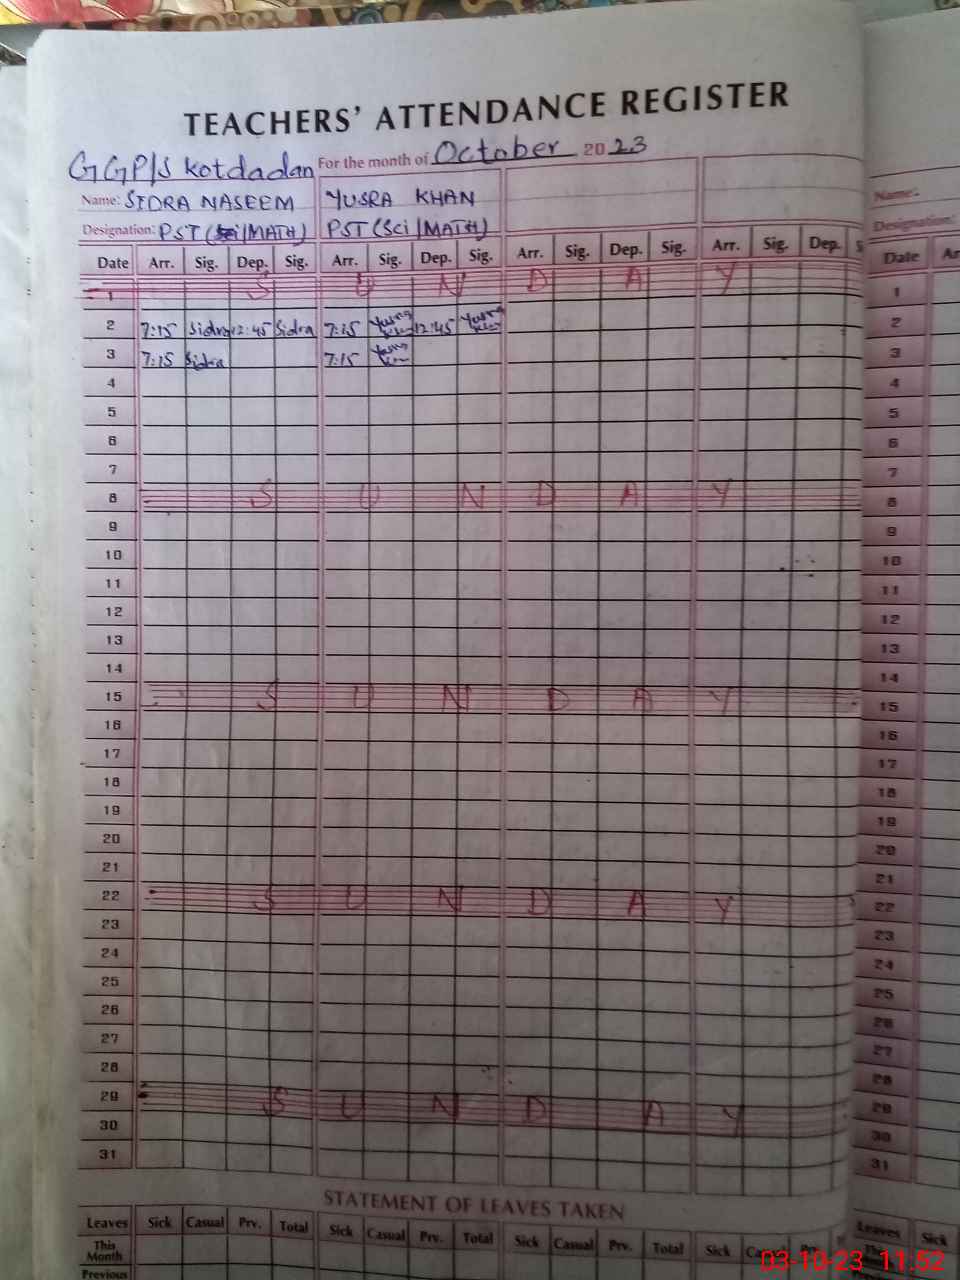 TEACHERS' ATTENDANCE REGISTER
GGP/S kotdadan For the month of October 2023
Name: SIDRA NASEEM YUSRA KHAN Name:
Designation: PST (Sci/MATH) PST (Sci/MATH) Designation:
Date Arr. Sig. Dep. Sig. Arr. Sig. Dep. Sig. Arr. Sig. Dep. Sig. Arr. Sig. Dep. S Date Ar
1 S U N D A Y 1
2 7:15 Sidra 12:45 Sidra 7:15 Yusra 12:45 Yusra 2
3 7:15 Sidra 7:15 Yusra 3
4 4
5 5
6 6
7 7
8 S U N D A Y 8
9 9
10 10
11 11
12 12
13 13
14 14
15 S U N D A Y 15
16 16
17 17
18 18
19 19
20 20
21 21
22 S U N D A Y 22
23 23
24 24
25 25
26 26
27 27
28 28
29 S U N D A Y 29
30 30
31 31
STATEMENT OF LEAVES TAKEN
Leaves Sick Casual Prv. Total Sick Casual Prv. Total Sick Casual Prv. Total Sick Casual Leaves Sick
This Month
Previous
03-10-23 11:52